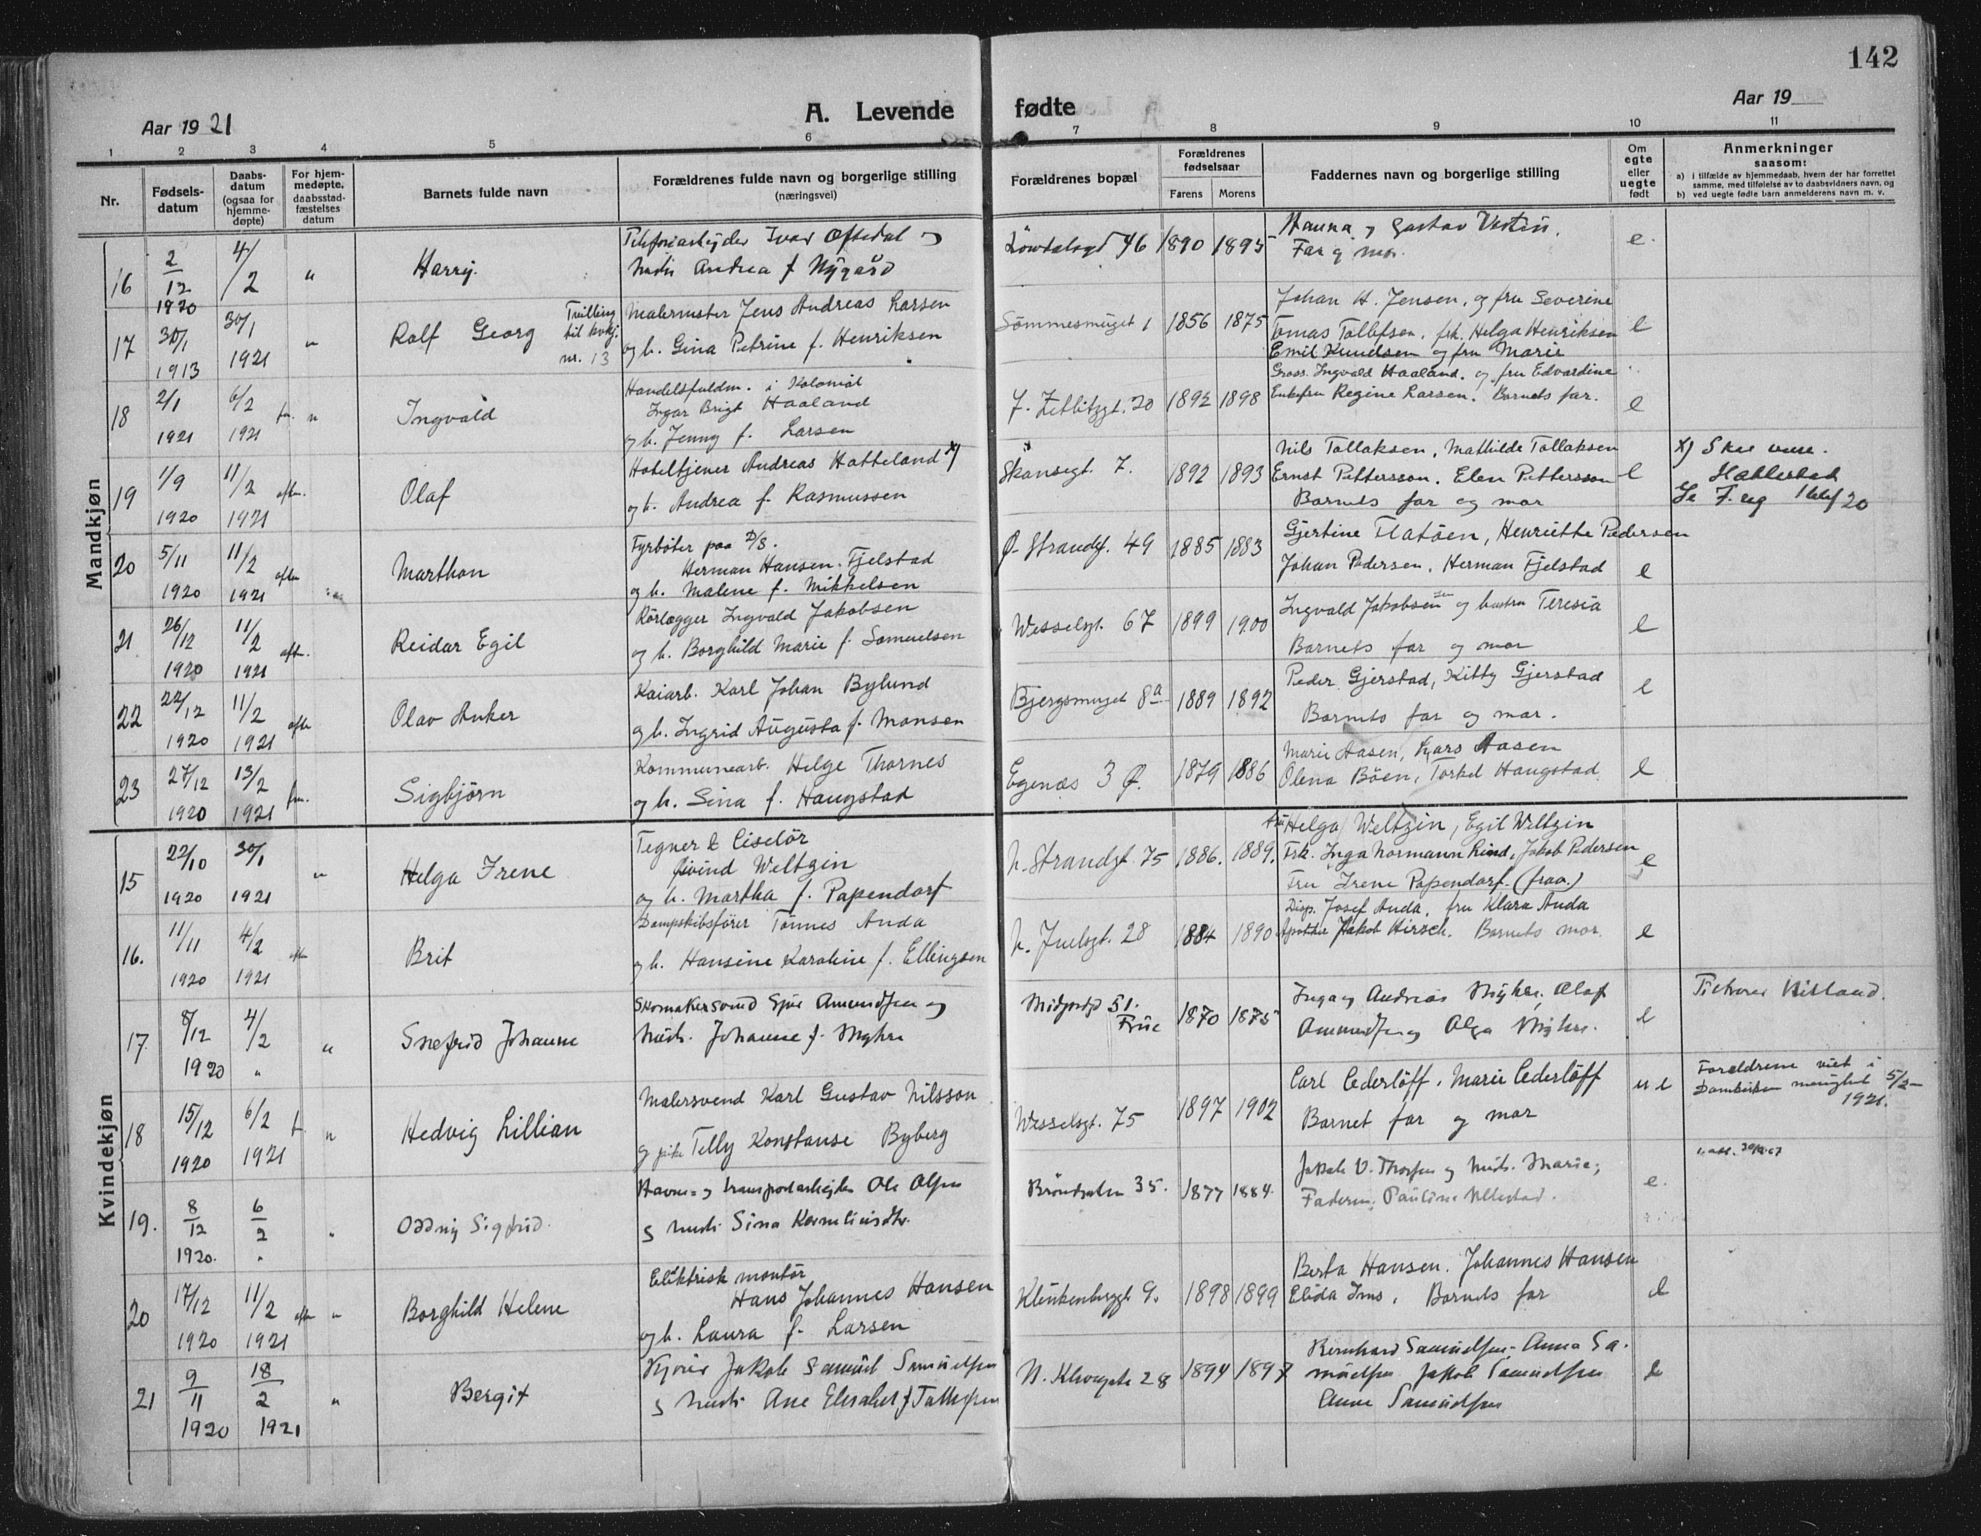 142
Aar 1921
A. Levende fødte
Aar 19
1 2 3 4 5 6 7 8 9 10 11
Nr.
Fødsels-datum
Daabs-datum (ogsaa for hjemme-døpte)
For hjem-medøpte, daabsstad-fæstelses datum
Barnets fulde navn
Forældrenes fulde navn og borgerlige stilling (næringsvei)
Forældrenes bopæl
Forældrenes fødselsaar
Farens Morens
Faddernes navn og borgerlige stilling
Om egte eller uegte født
Anmerkninger
saasom:
a) i tilfælde av hjemmedaab, hvem der har forrettet samme, med tilføielse av to daabsvidners navn, og
b) ved uegte fødte barn anmelderens navn m. v.
Mandkjøn
16 2/12 1920 4/2 " Harry. Ivar Oftedal og
Andrea f. Nygård
46 1890 1895 Hanna og Gustav
Far og mor. e.
17 30/1 1913 30/1 1921 " Rolf Georg Tvilling til kvkj. nr. 13
Malermester Jens Andreas Larsen
og h. Gina Petrine f. Henriksen
1 1856 1875
Johan H. Jensen, og fru Severine
Tomas Tollefsen, frk. Helga Henriksen e
Emil Knudsen og fru Marie
18 2/1 1921 6/2 1921 fm. " Ingvald
Handelsfuldm. i Kolonial
Ingar Brigt Haaland
og h. Jenny f. Larsen
J. Zetlitzgt. 20 1892 1898
Gross. Ingvald Haaland. og fru Edvardine
Enkefru Regine Larsen. Barnets far. e
19 1/9 1920 11/2 1921 aftn. Olaf
Hoteltjener Andreas Hatteland x)
og h. Andrea f. Rasmussen
Skansegt. 7. 1892 1893
Nils Tollaksen, Mathilde Tollaksen
Ernst Pettersson. Elen Pettersson e
Barnets far og mor
x) Skal være
Hatlestad
20 5/11 1920 11/2 1921 aftn Marthon
Fyrbøter paa D/S.
Herman Hansen Fjelstad
og h. Malene f. Mikkelsen
Ø. Strandg. 49 1885 1883
Gjertine Flatøen, Henriette Pedersen
Johan Pedersen, Herman Fjelstad e
21 26/12 1920 11/2 1921 aftn. Reidar Egil
Rørlægger Ingvald Jakobsen
og h. Borghild Marie f. Samuelsen
Wesselsgt. 67 1899 1900
Ingvald Jakobsen sen og hustru Teresia
Barnets far og mor e
22 22/12 1920 11/2 1921 aftn Olav Anker
Kaiarb. Karl Johan Bylund
og h. Ingrid Augusta f. Monsen
Bjergsmuget 8a 1889 1892
Peder Gjerstad, Kitty Gjerstad
Barnets far og mor. e
23 27/12 1920 13/2 1921 fm. Sigbjørn
Kommunearb. Helge Thornes
og h. Sina f. Haugstad
Egenæs 3 Ø. 1879 1886
Marie Aasen, Lars Aasen
Olena Bøen, Torkel Haugstad e
Kvindekjøn
15 22/10 1920 30/1 1921 " Helga Irene
Tegner & Ciselør
Øivind Weltzin
og h. Martha f. Papendorf
N. Strandgt. 75 1886. 1889.
Fru Helga Weltzin, Egil Weltzin
Frk. Inga Normann Rind, Jakob Pedersen e
Fru Irene Papendorf. (fraa.)
16. 11/11 1920 4/2 1921 aftn Brit
Dampskibsfører Tønnes Anda
og h. Hansine Karoline f. Ellingsen
N. Juelsgt. 28 1884 1890
Disp. Josef Anda, fru Klara Anda
Apotheker Jakob Hirsch. Barnets mor. e
17 8/12 1920 4/2 " " Snefrid Johanne
Skomakersvend Amundsen og
Johanne f. Myhre
51. 1870 1875
Inga og Andreas Myhre, Olaf
Amundsen og Olga Myhre. e
18 15/12 1920 6/2 1921 f. " Hedvig Lillian
Malersvend Karl Gustav Nilsson
og pike Telly Konstanse Byberg
Wesselsgt. 75 1897 1902
Carl Cederløff, Marie Cederløff
Barnet far og mor u e
Forældrene viet i
Domkirken menighet 5/2-
1921.
19. 8/12 1920. 6/2 " " Oddny Sigfrid.
Havne- og transportarbejder Ole Olsen
Sina
35. 1877 1884.
Jakob V. Thorsen og Marie;
Faderen; Pauline e.
20 17/12 1920 11/2 1921 aftn " Borghild Helene
Elektrisk montør
Hans Johannes Hansen
og h. Laura f. Larsen
9. 1898 1899
Berta Hansen. Johannes Hansen
Elida Ims. Barnets far e
21 9/11 1920 18/2 1921 " Bergit
Jakob Samuel Samuelsen
Ane Elisabet f.
28 1894 1897
Bernhard Samuelsen. Anna Sa-
muelsen Jakob Samuelsen e
Anne Samuelsen